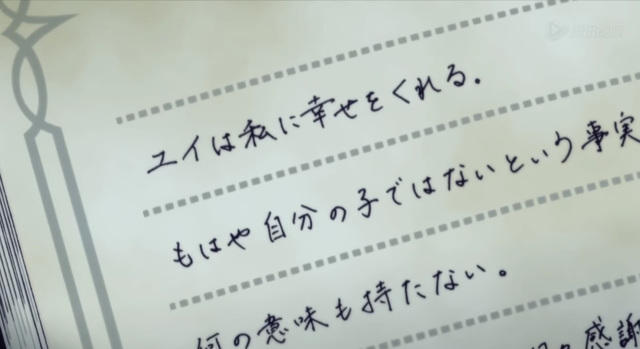 ユイは私に幸せをくれる。
もはや自分の子ではないという事実
何の意味も持たない。
感謝